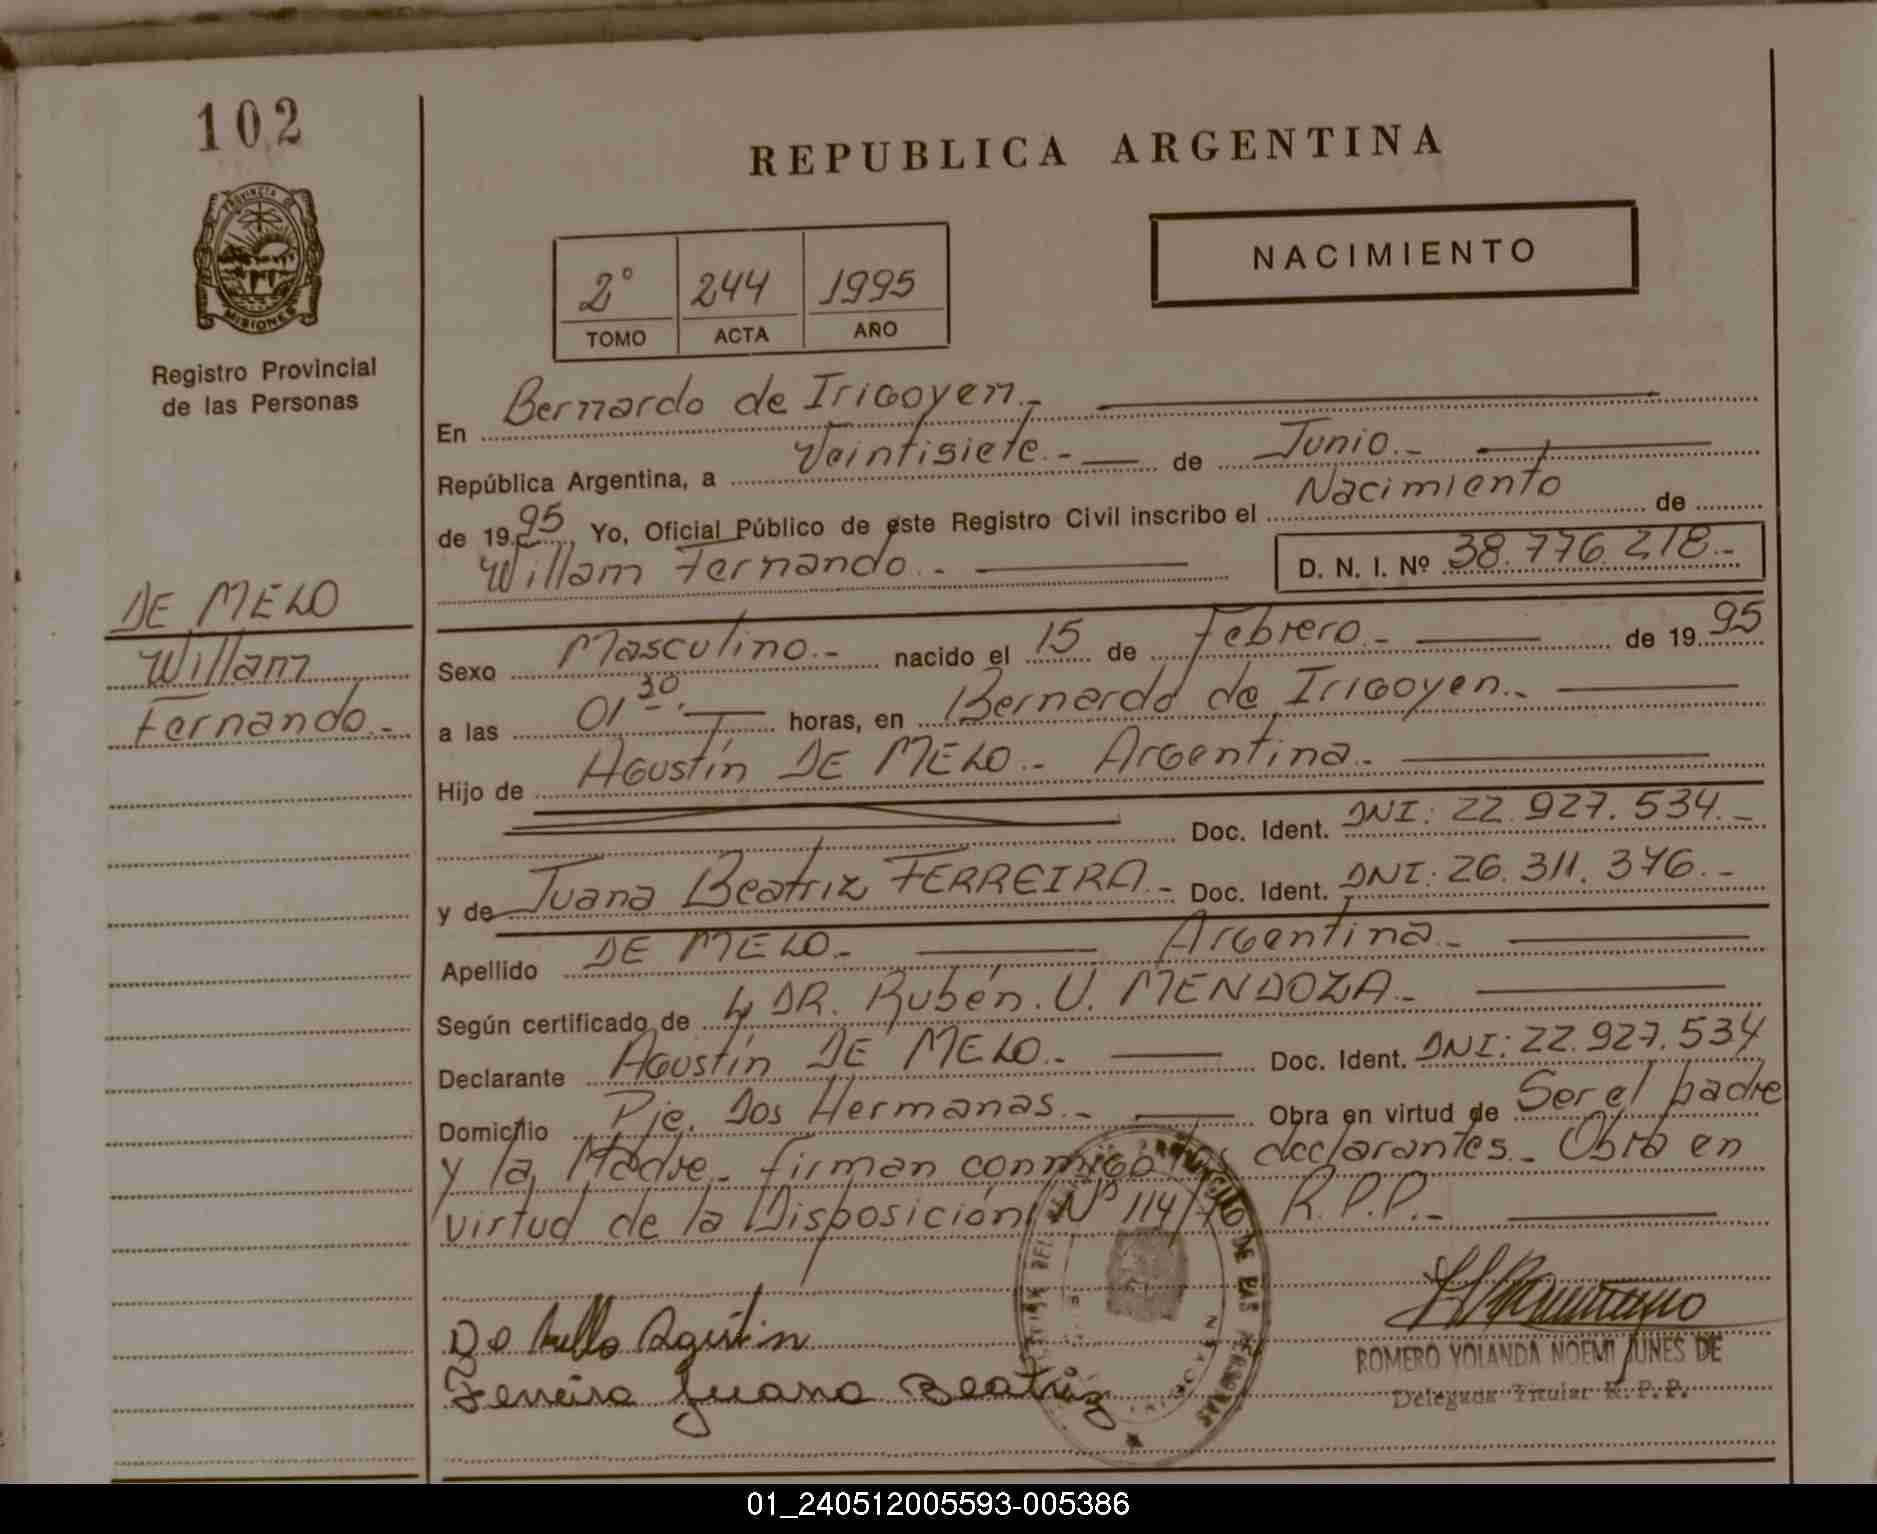 102
PROVINCIA DE
MISIONES
Registro Provincial
de las Personas
DE MELO
Willam
Fernando.-
REPUBLICA ARGENTINA
NACIMIENTO
2° 244 1995
TOMO ACTA AÑO
En Bernardo de Irigoyen.-
República Argentina, a Veintisiete.- de Junio.-
de 1995, Yo, Oficial Público de este Registro Civil inscribo el Nacimiento de
Willam Fernando.- D. N. I. Nº 38.776.218.-
Sexo Masculino.- nacido el 15 de Febrero.- de 1995
a las 01 30. horas, en Bernardo de Irigoyen.-
Hijo de Agustín DE MELO.- Argentina.-
Doc. Ident. DNI: 22.927.534.-
y de Juana Beatriz FERREIRA.- Doc. Ident. DNI: 26.311.376.-
Apellido DE MELO.- Argentina.-
Según certificado de DR. Rubén. U. MENDOZA.-
Declarante Agustín DE MELO.- Doc. Ident. DNI: 22.927.534
Domicilio Pje. Dos Hermanas.- Obra en virtud de Ser el padre
y la Madre.- firman conmigo los declarantes.- Obra en
virtud de la Disposición Nº 114/ R.P.P.-
De Mello Agustin
Ferreira Juana Beatriz
DE LAS PERSONAS
ROMERO YOLANDA NOEMI JUNES DE
Delegada Titular R.P.P.
01_240512005593-005386